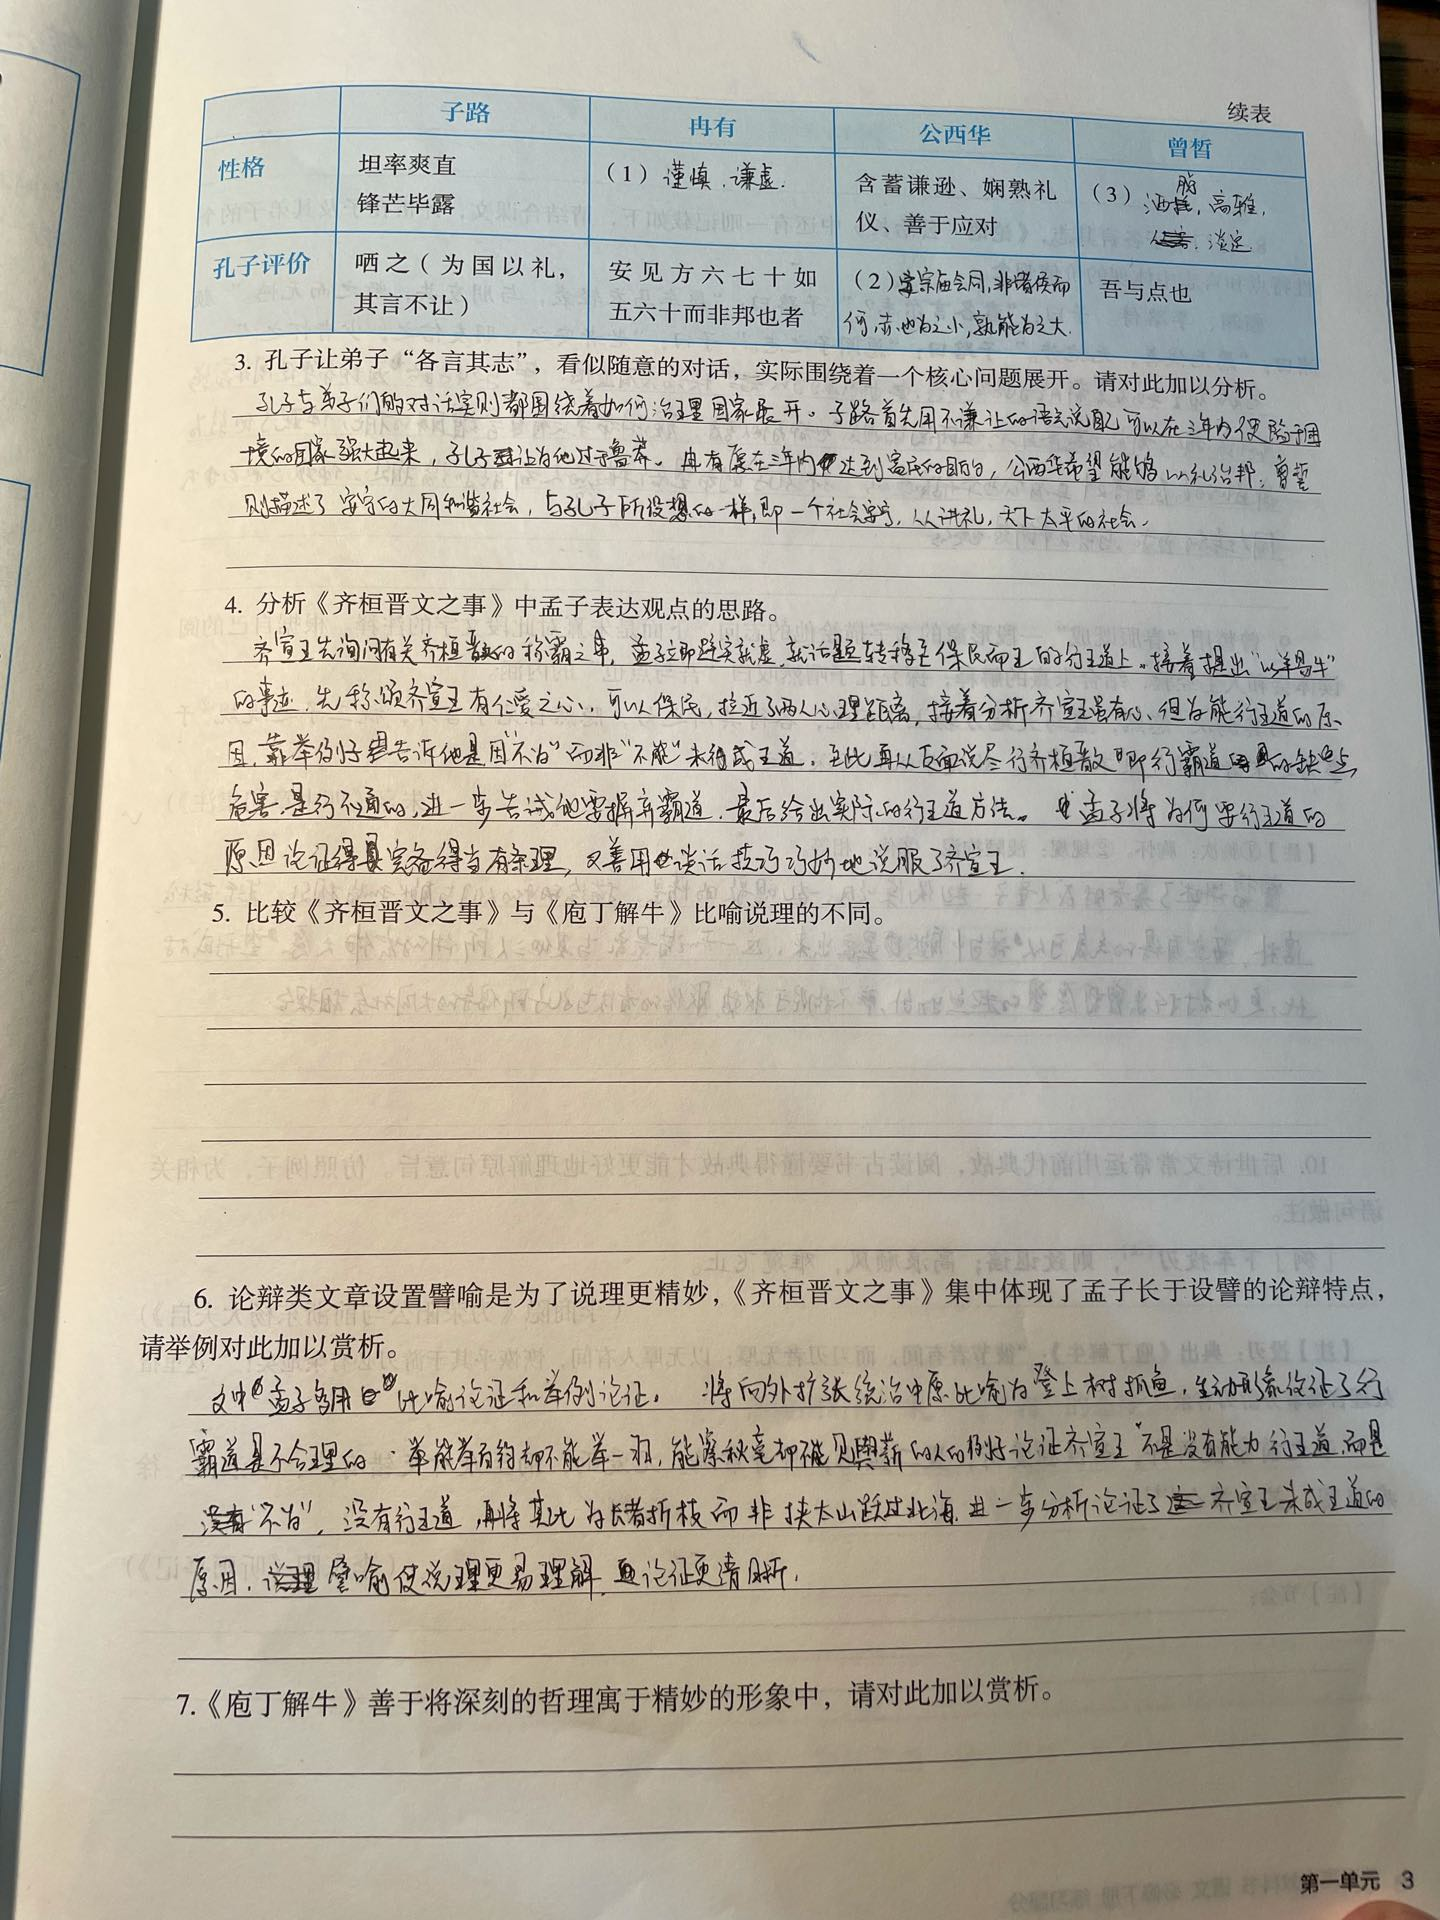 续表
子路 冉有 公西华 曾皙
性格 坦率爽直 锋芒毕露 (1) 谨慎、谦虚. 含蓄谦逊、娴熟礼仪、善于应对 (3) 洒脱, 高雅, 淡定
孔子评价 哂之(为国以礼,其言不让) 安见方六七十如五六十而非邦也者 (2) 宗庙会同,非诸侯而何,赤也为之小,孰能为之大. 吾与点也
3. 孔子让弟子“各言其志”，看似随意的对话，实际围绕着一个核心问题展开。请对此加以分析。
孔子与弟子们的对话实则都围绕着如何治理国家展开。子路首先用不谦让的语言说自己可以在三年内使陷于困
境的国家强大起来，孔子认为他过于鲁莽。冉有愿在三年内达到富民的目的，公西华希望能够以礼治邦；曾皙
则描述了安宁的大同和谐社会，与孔子所设想的一样，即一个社会安宁，人人讲礼，天下太平的社会.
4. 分析《齐桓晋文之事》中孟子表达观点的思路。
齐宣王先询问有关齐桓晋文的称霸之事，孟子立即避实就虚，就话题转移至保民而王的行王道上。接着提出“以羊易牛”
的事迹，先称颂齐宣王有仁爱之心，可以保民，拉近了两人心理距离，接着分析齐宣王虽有心、但为能行王道的原
因，靠举例子告诉他是因“不为”而非“不能”未行成王道，至此再从反面说尽行齐桓 即行霸道的缺点
危害是行不通的，进一步告诫他要摒弃霸道，最后给出实际的行王道方法。孟子将为何要行王道的
原因论证得完备得当有条理，又善用谈话技巧巧妙地说服了齐宣王.
5. 比较《齐桓晋文之事》与《庖丁解牛》比喻说理的不同。
6. 论辩类文章设置譬喻是为了说理更精妙，《齐桓晋文之事》集中体现了孟子长于设譬的论辩特点，
请举例对此加以赏析。
文中孟子多用比喻论证和举例论证。将向外扩张统治中原比喻为登上树抓鱼，生动形象论证了行
霸道是不合理的；举能举百钧却不能举一羽，能察秋毫却不能见舆薪的人的例子论证齐宣王不是没有能力行王道，而是
“不为”，没有行王道，再将其比为长者折枝而非挟太山跃过北海，进一步分析论证了齐宣王未成王道的
原因，譬喻使说理更易理解，论证更清晰.
7.《庖丁解牛》善于将深刻的哲理寓于精妙的形象中，请对此加以赏析。
第一单元 3